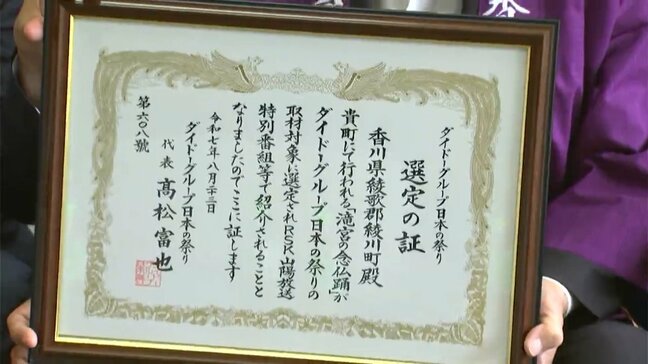 ダイドーグループ日本の祭り
選定の証
香川県綾歌郡綾川町殿
貴町にて行われる「滝宮の念仏踊」が
ダイドーグループ日本の祭りの
取材対象に選定されRSK山陽放送
特別番組等で紹介されることと
なりましたのでここに証します
令和七年八月二十三日
ダイドーグループ日本の祭り
代表 髙松富也
第六〇八號